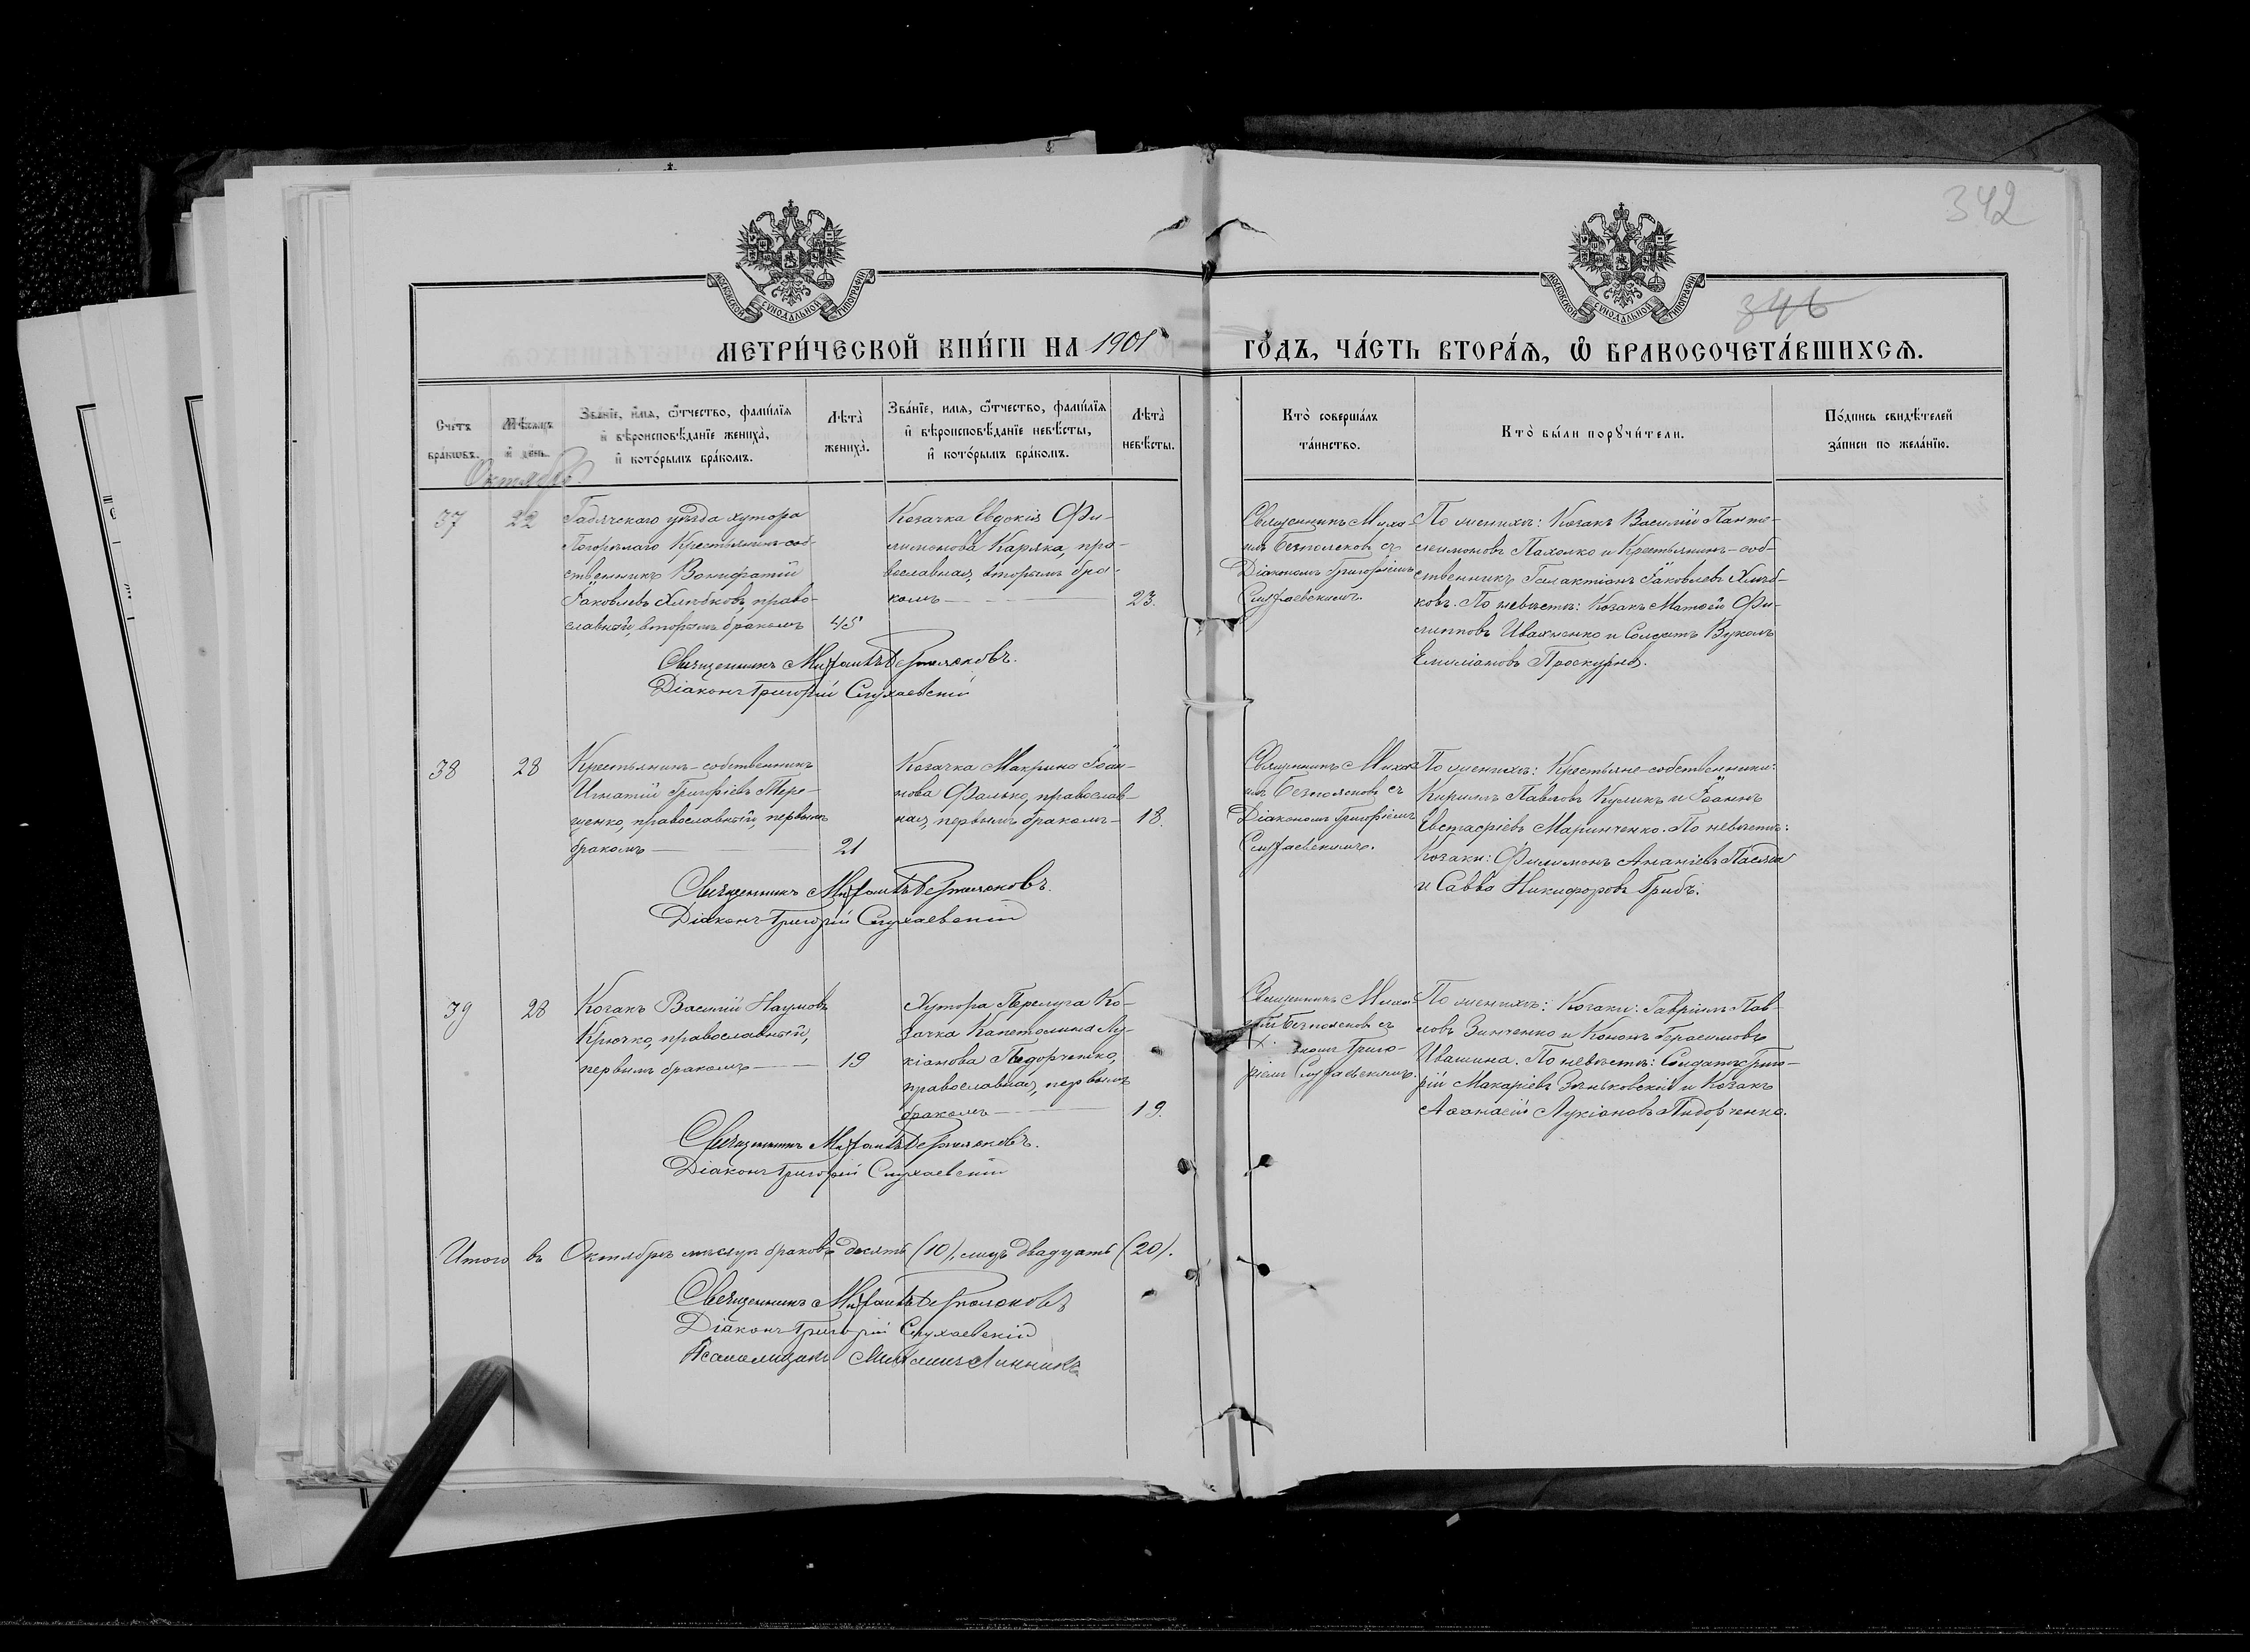 342
346
МОСКОВСКОЙ СѴНОДАЛЬНОЙ ТИПОГРАФІИ
МОСКОВСКОЙ СѴНОДАЛЬНОЙ ТИПОГРАФІИ
МЕТРИ́ЧЕСКОЙ КНИ́ГИ НА 1901
ГО́ДЪ, ЧА́СТЬ ВТОРА́Ѧ, Ѽ БРАКОСОЧЕТА́ВШИХСѦ.
Счетъ бракѡвъ.
Мѣсѧцъ и день.
Зва́нїе, и҆́мѧ, ѻ҆́тчество, фами́лїѧ
и҆ вѣроисповѣ́данїе жениха̀,
и҆ кото́рымъ бра́комъ.
Лѣта̀
жениха̀.
Зва́нїе, имѧ, ѻ҆́тчество, фами́лїѧ
и҆ вѣроисповѣ́данїе невѣ́сты,
и҆ кото́рымъ бра́комъ.
Лѣта̀
невѣ́сты.
Кто̀ соверша́лъ
та́инство.
Кто̀ бы́ли порꙋчи́тели.
По́дпись свидѣ́телей
за́писи по жела́нїю.
Октябрь
37
22
Гадячскаго уѣзда хутора
Погорѣлаго Крестьянинъ-соб-
ственникъ Вонифатій
Іаковлевъ Хлѣбковъ, право-
славный, вторымъ бракомъ
45
Козачка Евдокія Фи-
лимонова Каряка, пра-
вославная, вторымъ бра-
комъ
23.
Священникъ Миха-
илъ Безпоясковъ съ
Діакономъ Григоріемъ
Слухаевскимъ.
По женихѣ: Козакъ Василій Панте-
леимоновъ Пахолко и Крестьянинъ-соб-
ственникъ Галактіонъ Іаковлевъ Хлѣб-
ковъ. По невѣстѣ: Козакъ Матѳей Фи-
липповъ Иваненко и Солдатъ Вуколъ
Емиліановъ Проскурня.
Священникъ Михаилъ Безпоясковъ.
Діаконъ Григорій Слухаевскій
38
28
Крестьянинъ-собственникъ
Игнатій Григоріевъ Тере-
щенко, православный, первымъ
бракомъ
21
Козачка Макрина Іоан-
нова Фалько, православ-
ная, первымъ бракомъ
18.
Священникъ Миха-
илъ Безпоясковъ съ
Діакономъ Григоріемъ
Слухаевскимъ.
По женихѣ: Крестьяне-собственники:
Кириллъ Павловъ Куликъ и Іоаннъ
Евстафіевъ Маринченко. По невѣстѣ:
Козаки: Филимонъ Ананіевъ
и Савва Никифоровъ Грибъ.
Священникъ Михаилъ Безпоясковъ.
Діаконъ Григорій Слухаевскій
39
28
Козакъ Василій Наумовъ
Крючко, православный,
первымъ бракомъ
19
Хутора Перелуга Ко-
зачка Капетолина Лу-
кіанова Пидорченко,
православная, первымъ
бракомъ
19.
Священникъ Миха-
илъ Безпоясковъ съ
Григо-
ріемъ Слухаевскимъ.
По женихѣ: Козаки: Гавріилъ Пав-
ловъ Зинченко и Кононъ Герасимовъ
Ивашина. По невѣстѣ: Солдатъ Григо-
рій Макаріевъ Зѣньковскій и Козакъ
Аѳанасій Лукіановъ Пидорченко.
Священникъ Михаилъ Безпоясковъ.
Діаконъ Григорій Слухаевскій
Итого въ Октябрѣ мѣсяцѣ браковъ десять (10), лицъ двадцать (20).
Священникъ Михаилъ Безпоясковъ
Діаконъ Григорій Слухаевскій
Псаломщикъ Михаилъ Линникъ